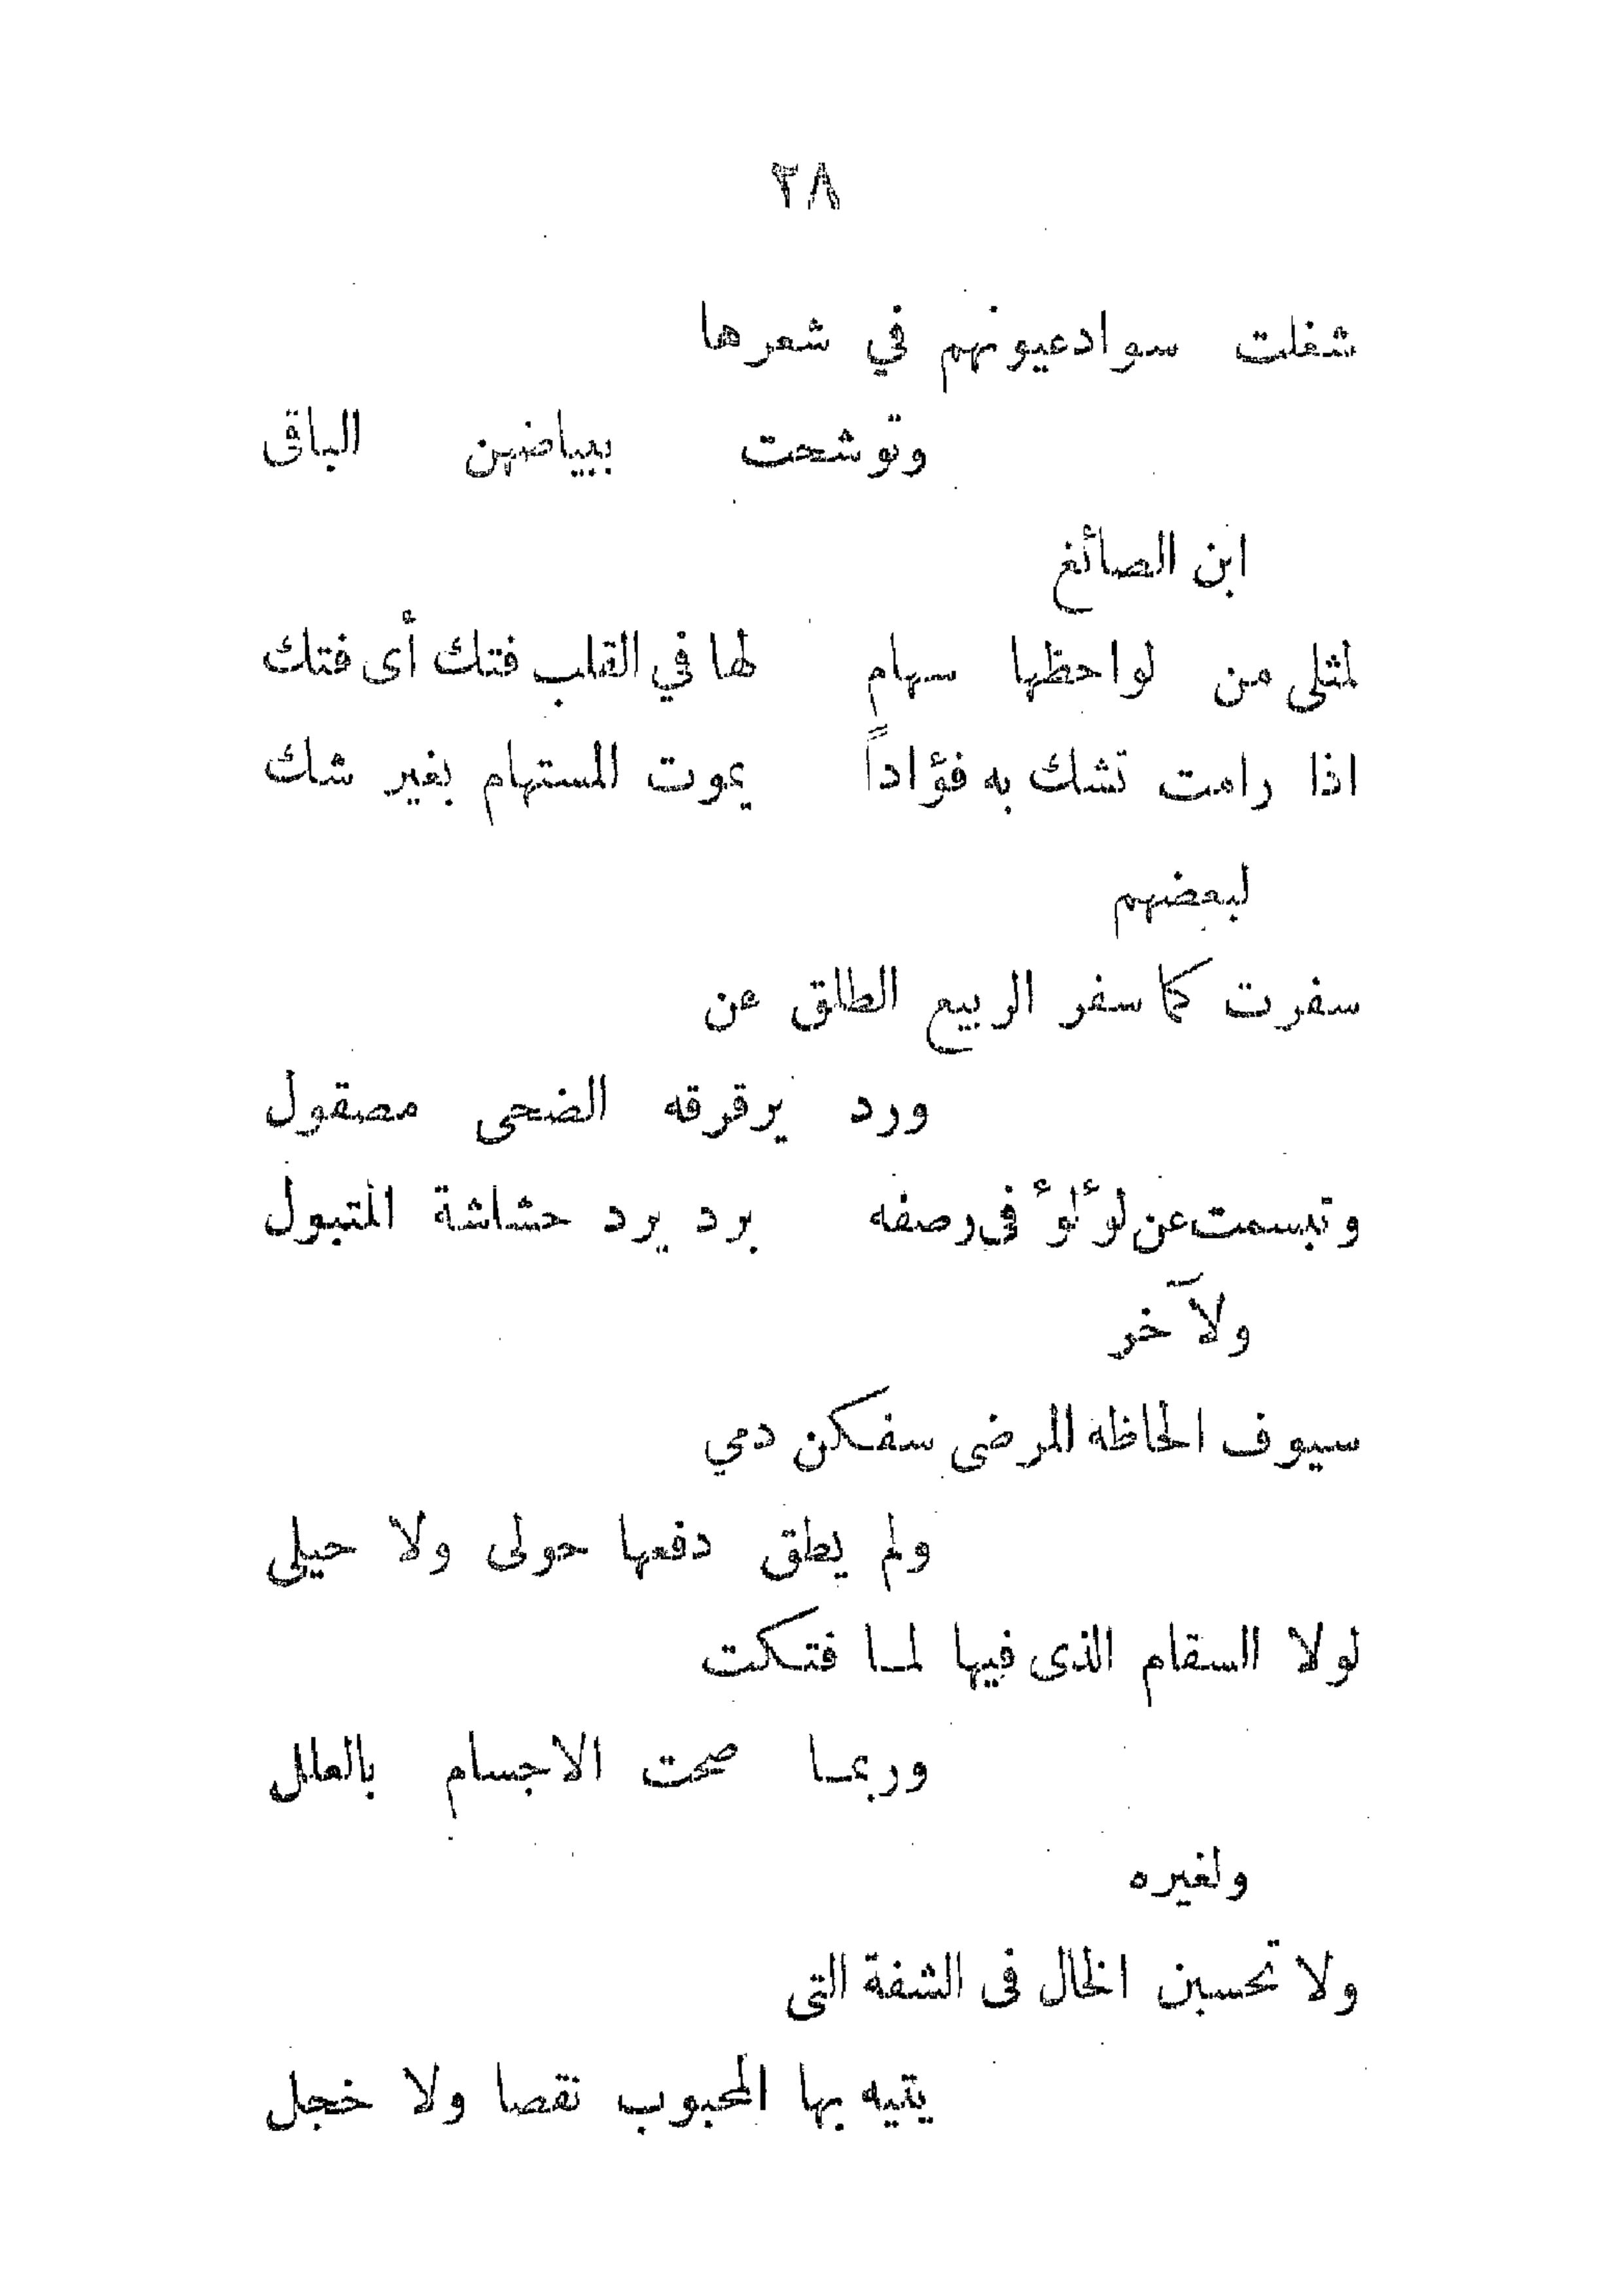 ٢٨
شغلت سوادعيونهم في شعرها
وتوشحت ببياضهن الباقى
ابن الصائغ
لمثلى من لواحظها سهام لها في القلب فتك أى فتك
اذا رامت تشك به فؤاداً يموت المستهام بغير شك
لبعضهم
سفرت كما سفر الربيع الطلق عن
ورد يرقرقه الضحى مصقول
وتبسمت عن لؤلؤ فى رصفه برد يرد حشاشة المتبول
ولآخر
سيوف الحاظه المرضى سفكن دمي
ولم يطق دفعها حولى ولا حيلى
لولا السقام الذى فيها لما فتكت
وربما صحت الاجسام بالعلل
ولغيره
ولا تحسبن الخال فى الشفة التى
يتيه بها المحبوب نقصا ولا خجل